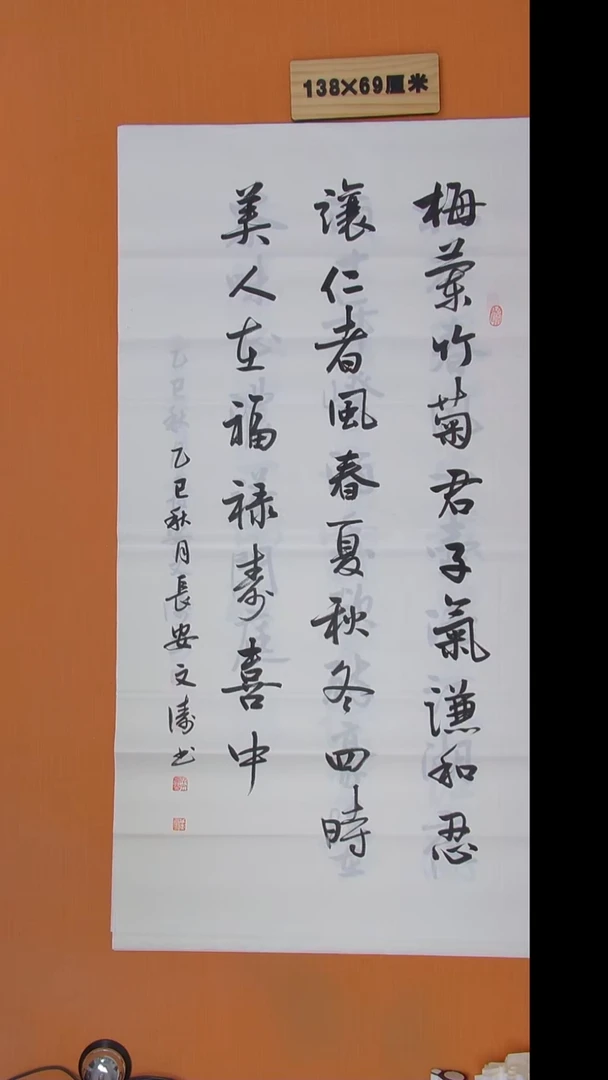 138×69厘米
梅蘭竹菊君子氣謙和忍
讓仁者風春夏秋冬四時
美人在福禄壽喜中
乙巳秋月長安文濤书